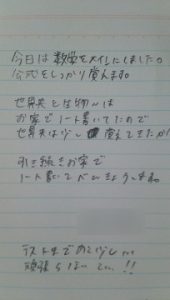 今日は数学をメインにしました。
公式をしっかり覚えます。
世界史と生物〜は
お家でノート書いてたので
世界史は少し覚えてきたか
引き続きお家で
ノート書いてべんきょうします。
テストまであと少し...
頑張らないと...!!